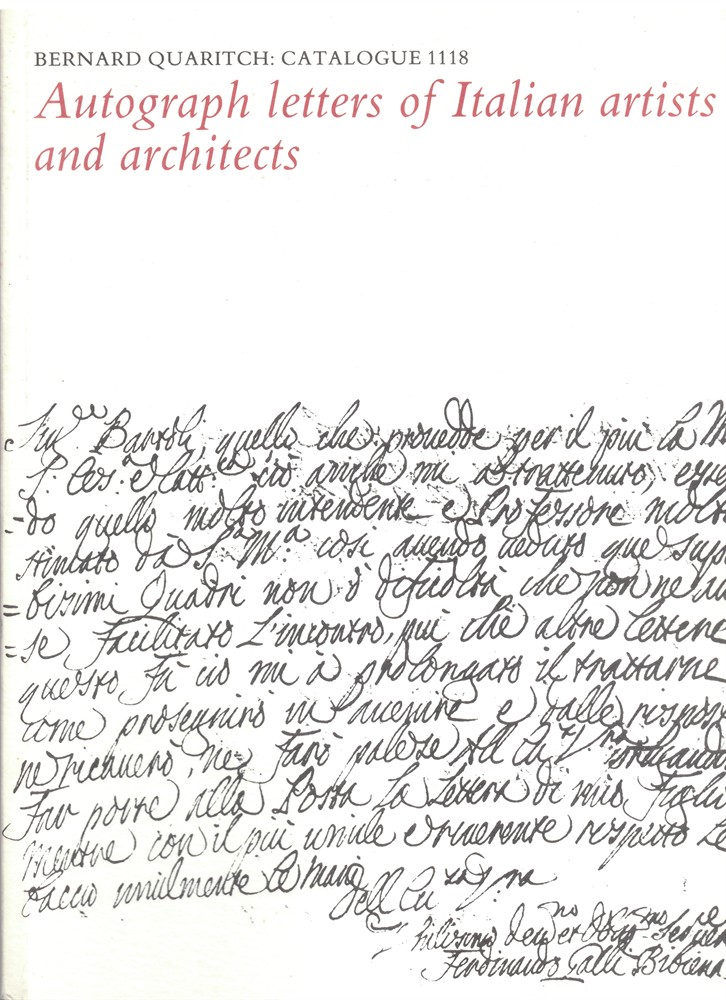 BERNARD QUARITCH: CATALOGUE 1118
Autograph letters of Italian artists
and architects
Sig.re Bartoli, quello che provedde per il più la M
S. Ces.a e Catt.ca ciò anche mi à trattenuto, esse
-do quello molto intendente e Professore molto
stimato da S.a M.a così avendo veduto que sup
=bisimi Quadri non v'è dificoltà che non ne
=se facilitato L'incontro, più che altre lettere
questo, fà ciò mi à prolongato il trattarne
come proseguirò in avenire e dalle rispos
ne ricaverò, ne farò palese All
Far porre alla Posta La Lettera di mio Figlio
mentre con il più umile e riverente respetto Le
baccio umilmente Le mani
Dell
Ferdinando Galli Bibiena